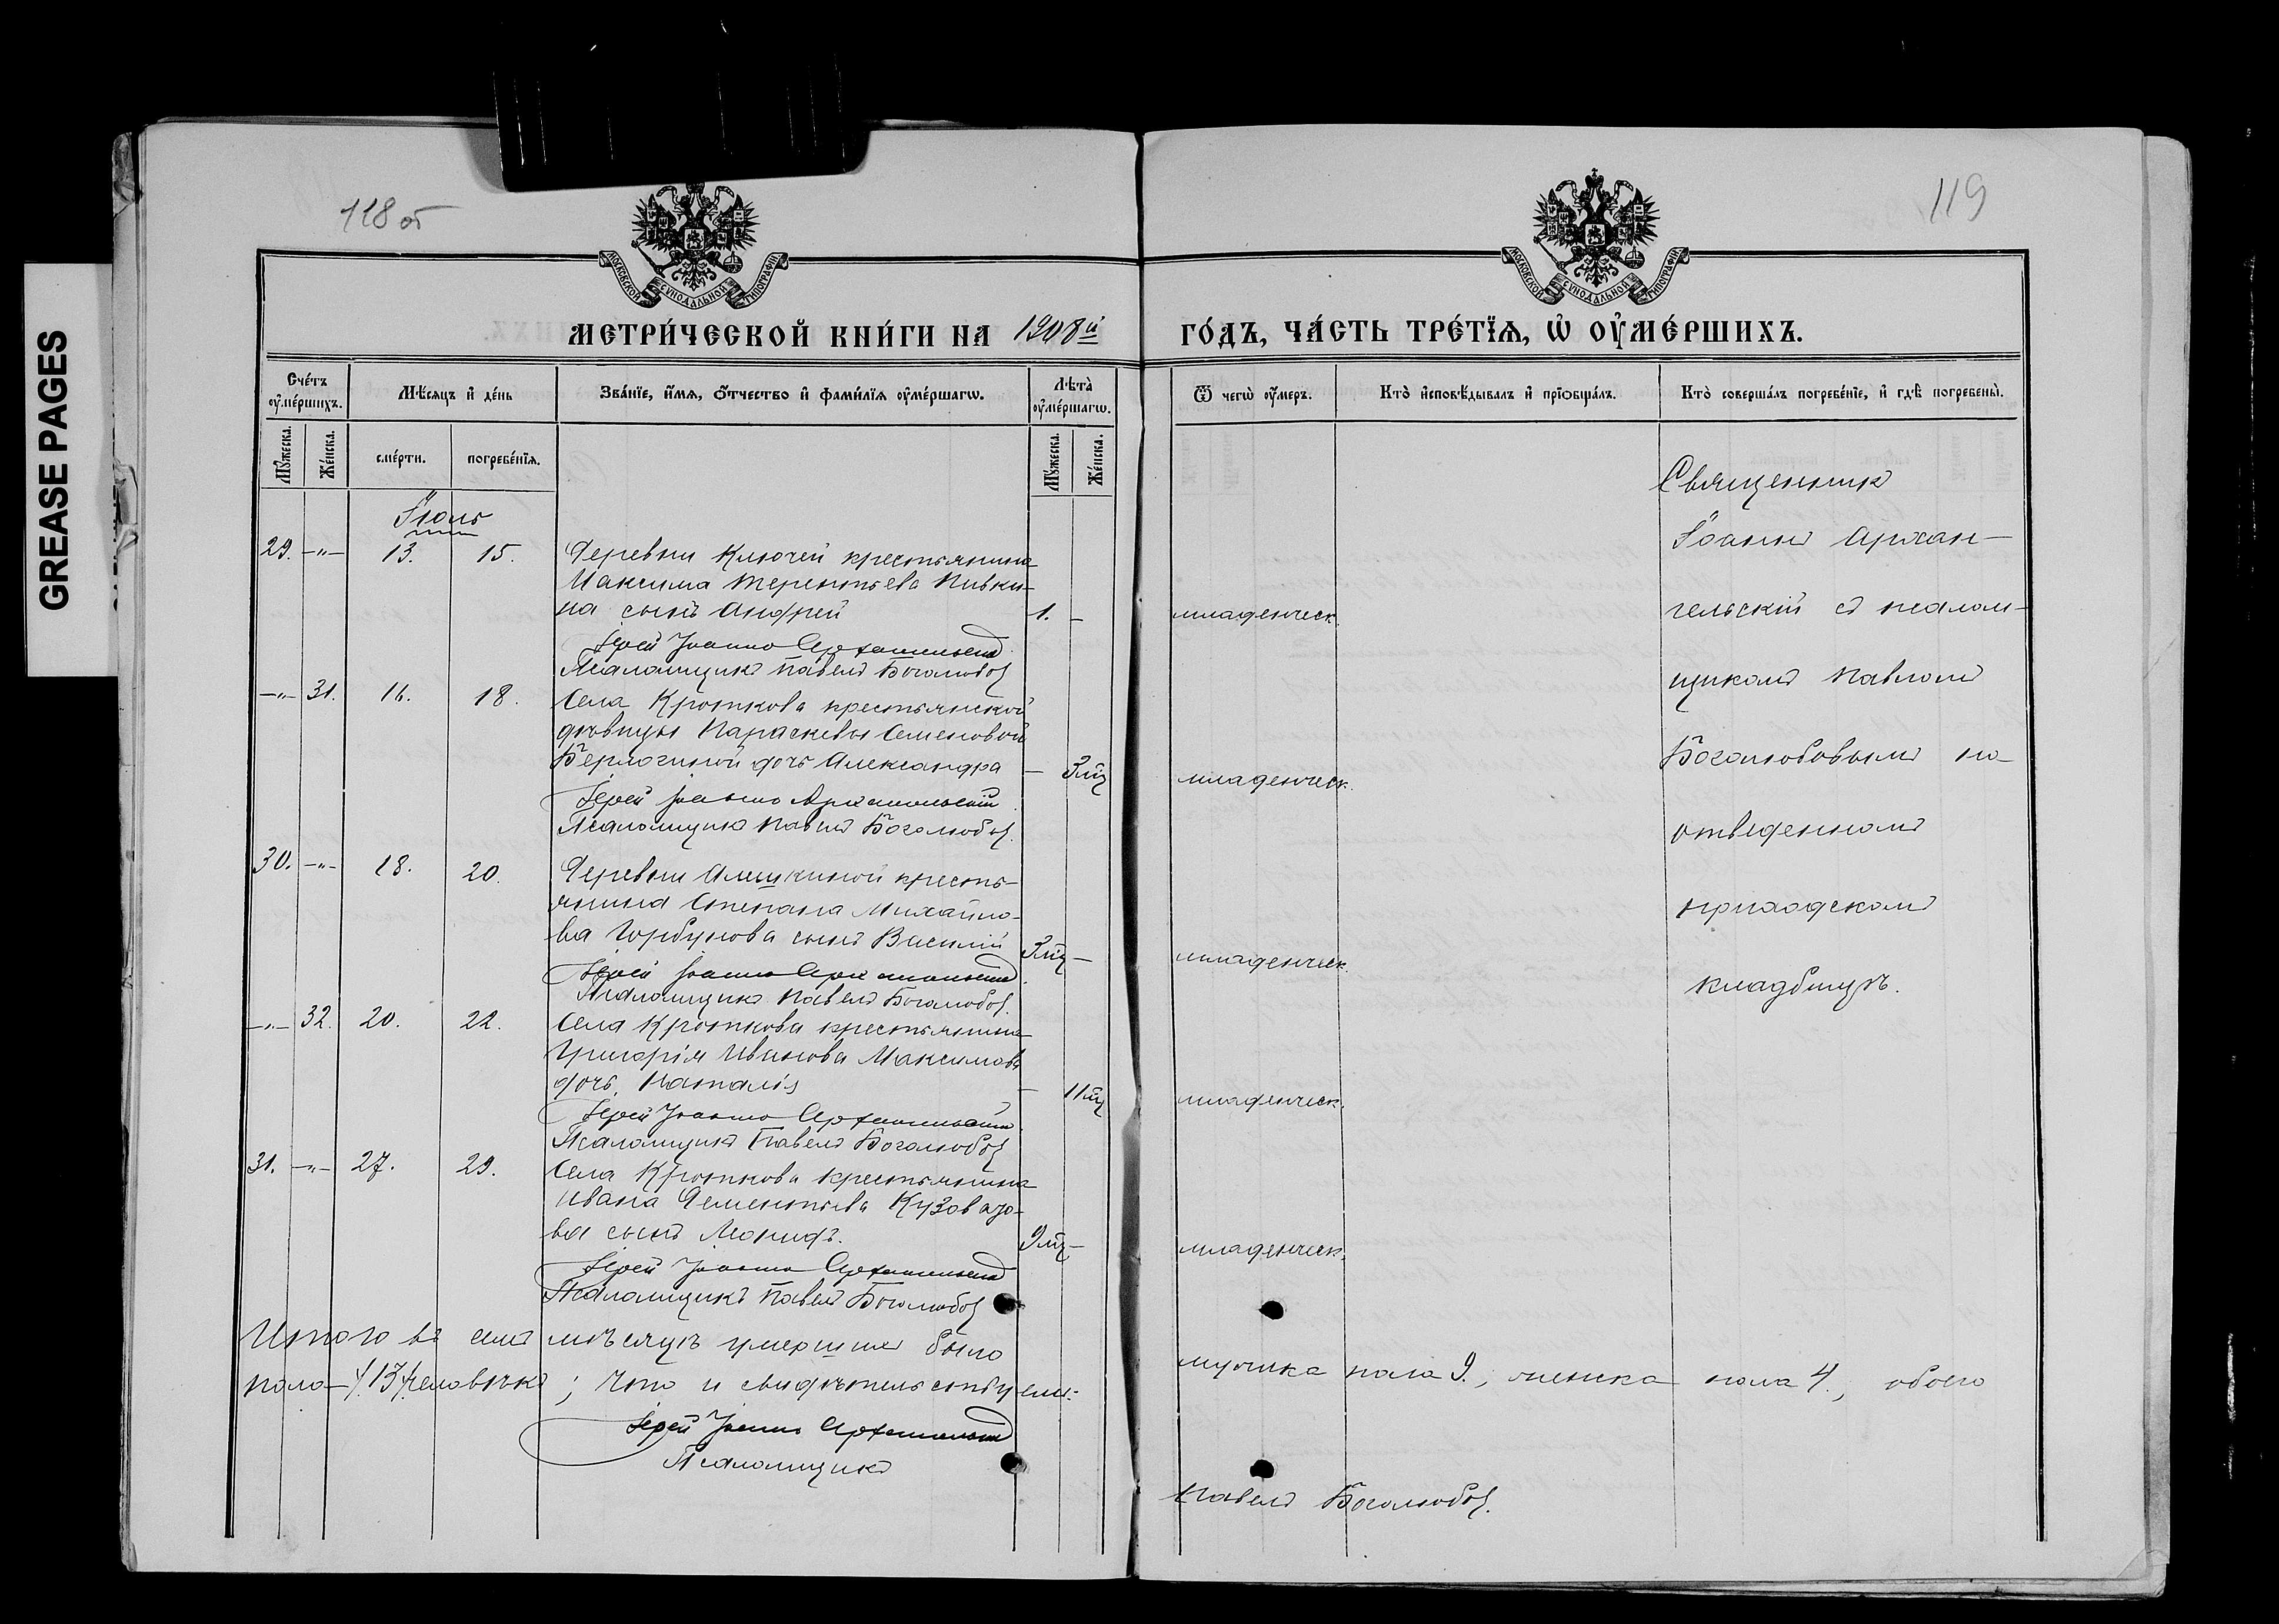 GREASE PAGES
118 об
МОСКОВСКОЙ СѴНОДАЛЬНОЙ ТИПОГРАФІИ
МЕТРИ́ЧЕСКОЙ КНИ́ГИ НА 1908й
Сче́тъ ᲂу҆ме́ршихъ.
Мѣ́сяцъ и҆ де́нь
Зва́нїе, и҆́мя, ѻ҆́тчество и҆ фами́лїя ᲂу҆ме́ршагѡ.
Лѣта̀ ᲂу҆ме́ршагѡ.
Мꙋ́жеска.
Же́нска.
сме́рти.
погребе́нїѧ.
Мꙋ́жеска.
Же́нска.
Іюль
29. —„— 13. 15. Деревни Ключей крестьянина
Максима Терентьева Пивки-
на сынъ Андрей 1. –
Іерей Іоаннъ Архангельскій
Псаломщикъ Павелъ Боголюбов
—„— 31. 16. 18. Села Кроткова крестьянской
дѣвицы Параскевы Семеновой
Берлогиной дочь Александра – 3 мц
Іерей Іоаннъ Архангельскій
Псаломщикъ Павелъ Боголюбов.
30. —„— 18. 20. Деревни Алешкиной кресть-
янина Степана Михайло-
ва Горбунова сынъ Василій 3 мц –
Іерей Іоаннъ Архангельскій
Псаломщикъ Павелъ Боголюбов.
—„— 32. 20. 22. Села Кроткова крестьянина
Григорія Иванова Максимова
дочь Наталія – 11 мц
Іерей Іоаннъ Архангельскій
Псаломщикъ Павелъ Боголюбов
31. —„— 27. 29. Села Кроткова крестьянина
Ивана Дементьева Кузовазо-
ва сынъ Леонидъ. 9 мц –
Іерей Іоаннъ Архангельскій
Псаломщикъ Павелъ Боголюбов
Итого въ семъ мѣсяцѣ умершихъ было
пола – 13 человѣкъ; что и свидѣтельствуемъ:
Іерей Іоаннъ Архангельскій
Псаломщикъ
119
МОСКОВСКОЙ СѴНОДАЛЬНОЙ ТИПОГРАФІИ
ГО́ДЪ, ЧА́СТЬ ТРЕ́ТЇѦ, Ѡ҆ ОУ҆МЕ́РШИХЪ.
Ѿ чегѡ̀ ᲂу҆́меръ.
Кто̀ и҆сповѣ́дывалъ и҆ прїѡбща́лъ.
Кто̀ соверша́лъ погребе́нїе, и҆ гдѣ̀ погребены̀.
Священникъ
Іоаннъ Архан-
гельскій съ псалом-
щикомъ Павломъ
Боголюбовымъ на
отведенномъ
приходскомъ
кладбищѣ.
младенческ.
младенческ.
младенческ.
младенческ.
младенческ.
мужска пола 9., женска пола 4., обоего
Павелъ Боголюбов.